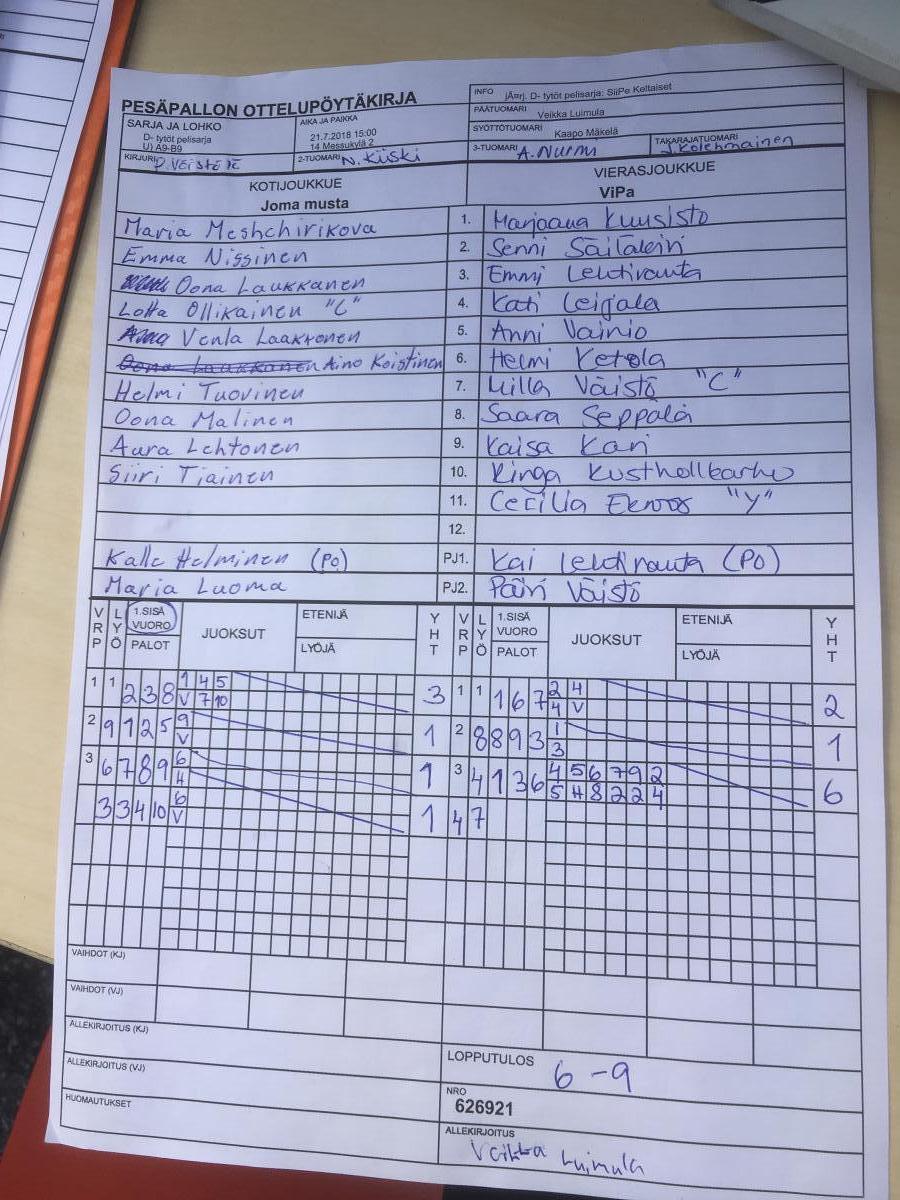 PESÄPALLON OTTELUPÖYTÄKIRJA
INFO jÄ¤rj. D- tytöt pelisarja: SiiPe Keltaiset
PÄÄTUOMARI Veikka Luimula
SARJA JA LOHKO
D- tytöt pelisarja
U) A9-B9
AIKA JA PAIKKA
21.7.2018 15:00
14 Messukylä 2
SYÖTTÖTUOMARI Kaapo Mäkelä
KIRJURI P. Veistete
2-TUOMARI N. Kiiski
3-TUOMARI A. Nurmi
TAKARAJATUOMARI J. Kolehmainen
KOTIJOUKKUE
Joma musta
VIERASJOUKKUE
ViPa
Maria Meshchirikova 1. Marjaana Kuusisto
Emma Nissinen 2. Senni Säiläkivi
Oona Laukkanen 3. Emmi Lehtiranta
Lotta Ollikainen "C" 4. Kati Leijala
Venla Laakkonen 5. Anni Vainio
Oona Laukkanen Aino Koistinen 6. Helmi Ketola
Helmi Tuovinen 7. Milla Väistö "C"
Oona Malinen 8. Saara Seppälä
Aura Lehtonen 9. Kaisa Kari
Siiri Tiainen 10. Kinga
11. Cecilia Ekroos "Y"
12.
Kalle Helminen (PO) PJ1. Kai Lehtiranta (PO)
Maria Luoma PJ2. Päivi Väistö
VRP LYÖ 1.SISÄ VUORO PALOT JUOKSUT ETENIJÄ LYÖJÄ YHT VRP LYÖ 1.SISÄ VUORO PALOT JUOKSUT ETENIJÄ LYÖJÄ YHT
1 1 2 3 8 1 4 5 3 1 1 1 6 7 2 4 2
V 7 10 4 V
2 9 1 2 5 9 1 2 8 8 9 3 1 1
V 3
3 6 7 8 9 6 1 3 4 1 3 6 4 5 6 7 9 2 6
4 5 4 8 2 2 4
3 3 4 10 6 1 4 7
V
VAIHDOT (KJ)
VAIHDOT (VJ)
ALLEKIRJOITUS (KJ)
ALLEKIRJOITUS (VJ)
HUOMAUTUKSET
LOPPUTULOS 6 - 9
NRO
626921
ALLEKIRJOITUS
Veikka Luimula